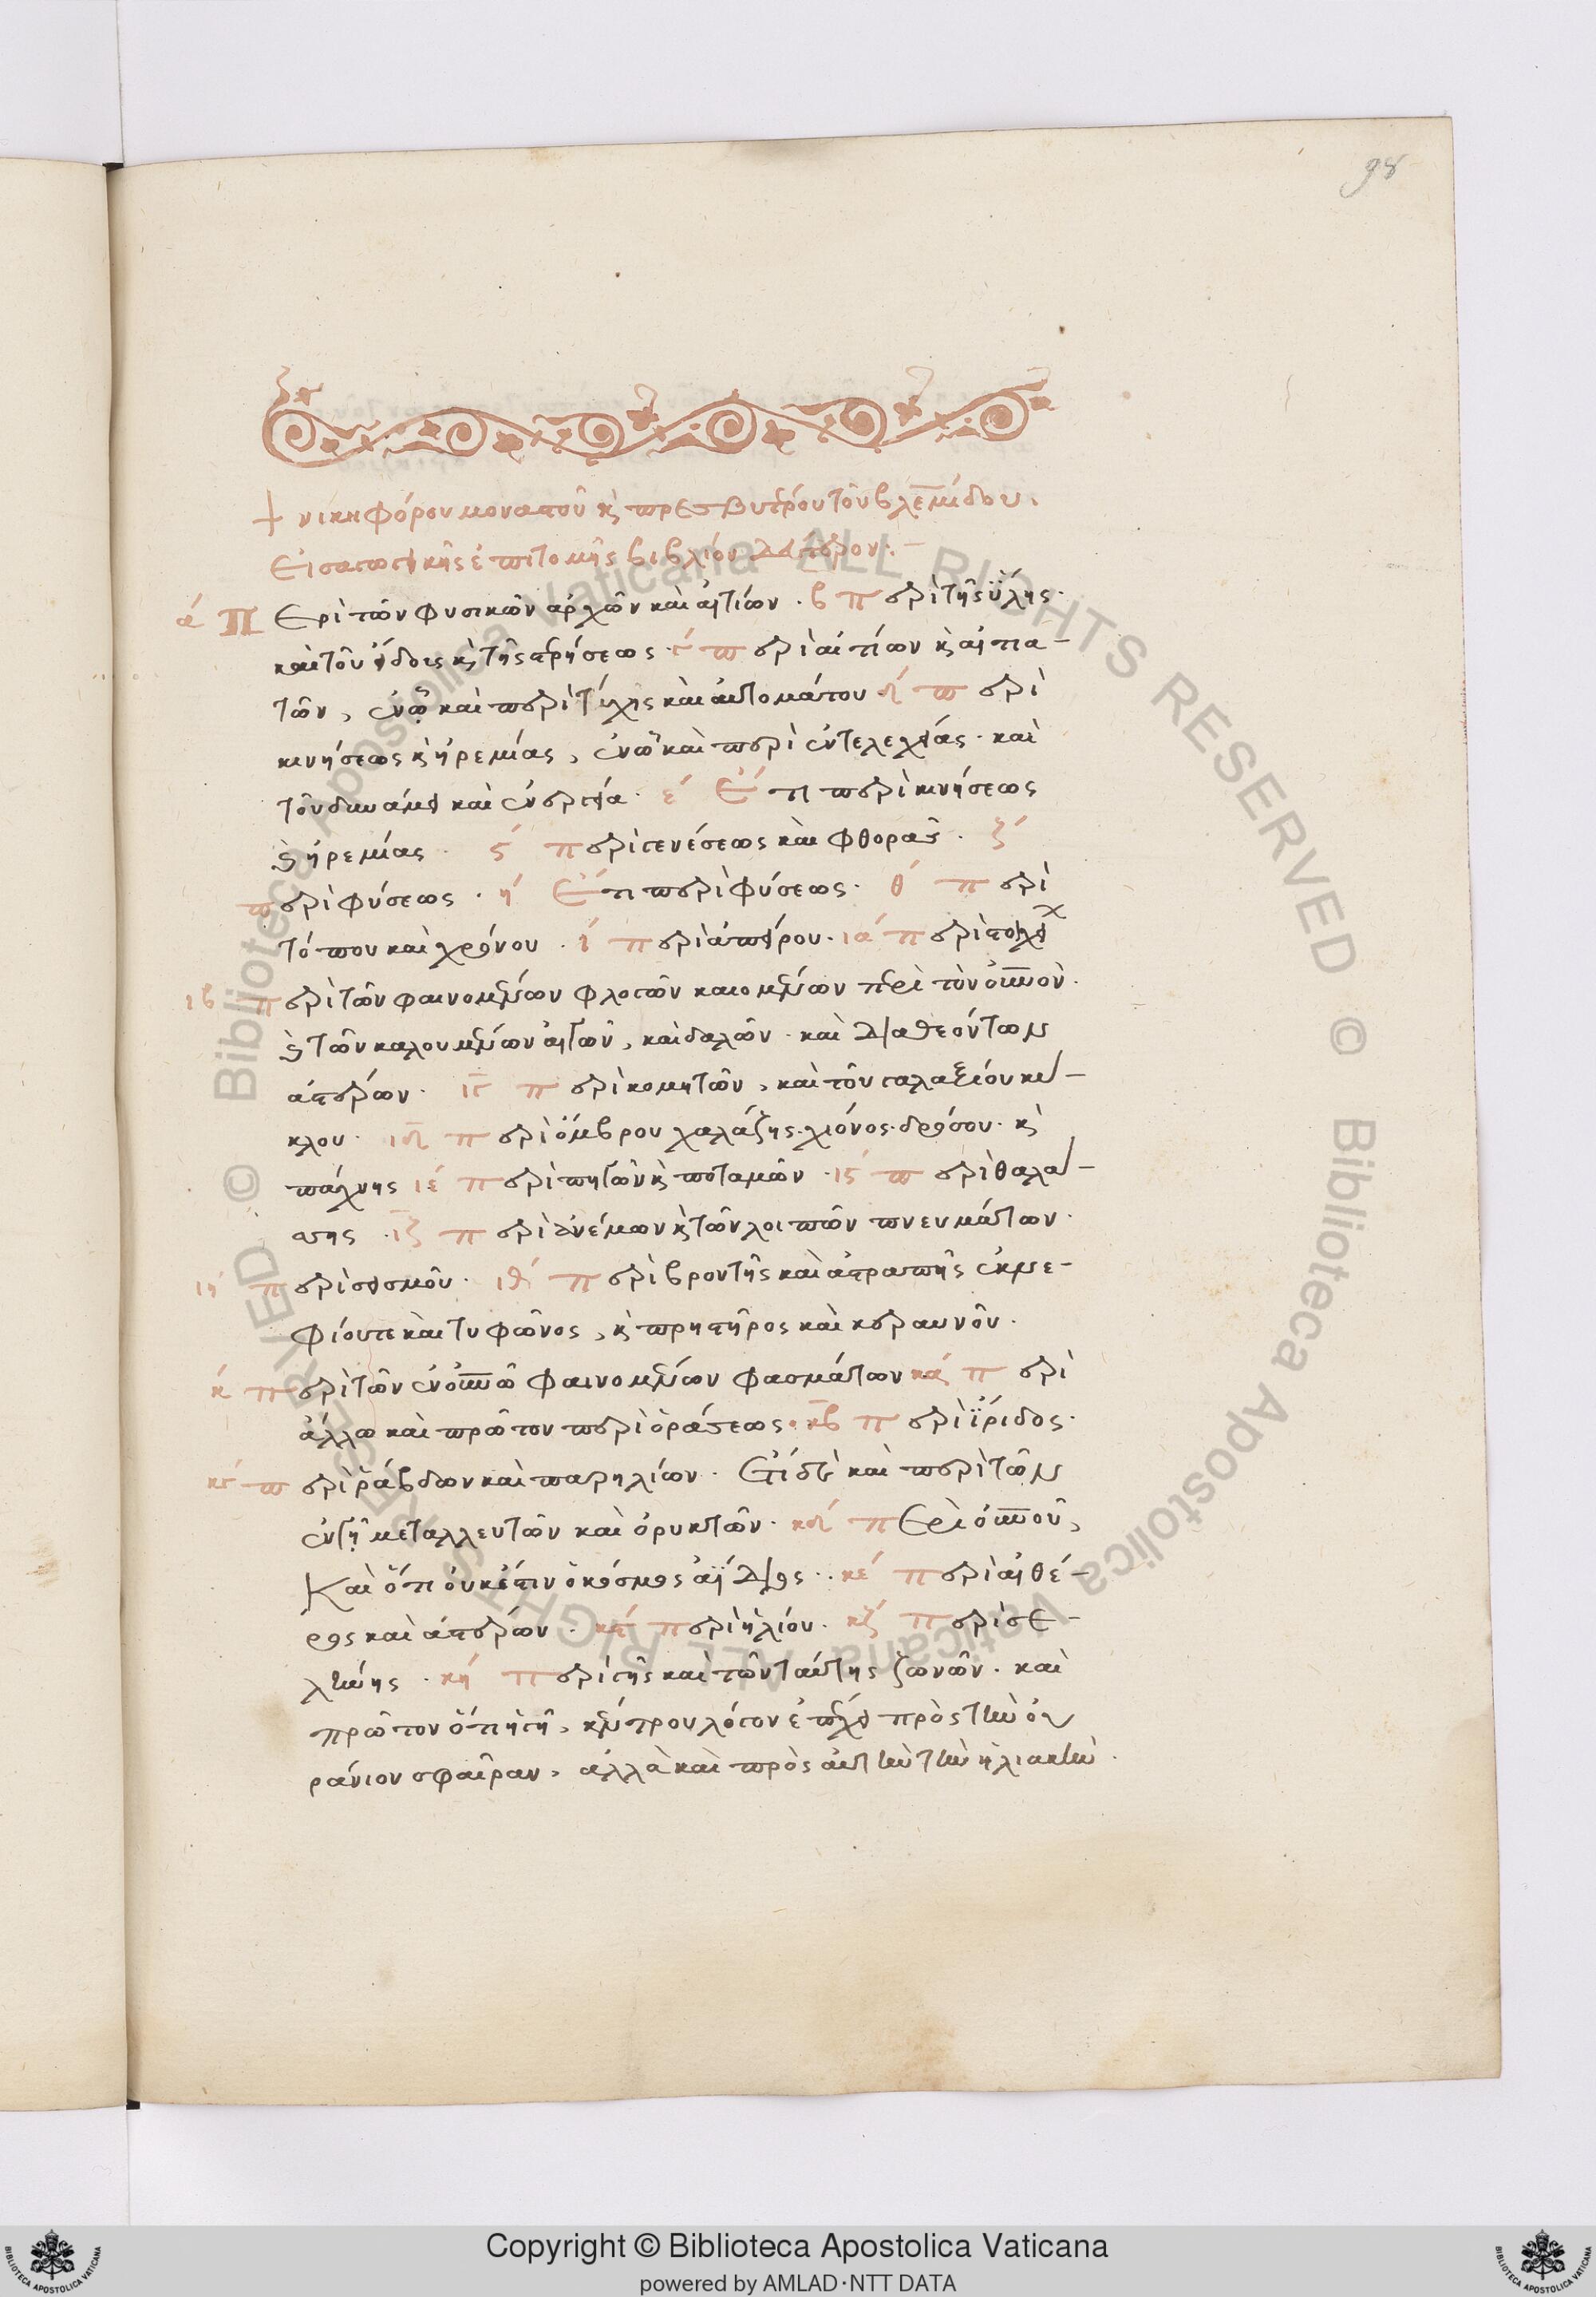 98
+ νικηφόρου μοναστοῦ κὶ πρεσβυτέρου τοῦ βλεμμίδου.
Εἰσαγωγικῆς ἐπιτομῆς βιβλίον δεύτερον:–
ά Περὶ τῶν φυσικῶν ἀρχῶν καὶ αἰτίων. β περὶ τῆς ὕλης.
καὶ τοῦ εἴδους κὶ τῆς στερήσεως. γ περὶ αἰτίων κὶ αἰτια–
τῶν, ἐν ᾧ καὶ περὶ τύχης καὶ αὐτομάτου δ περὶ
κινήσεως κὶ ἠρεμίας, ἐν ᾧ καὶ περὶ ἐντελεχείας. καὶ
τοῦ δυνάμει καὶ ἐνεργεία. έ Ἔτι περὶ κινήσεως
κὶ ἠρεμίας. ς περὶ γενέσεως καὶ φθορᾶς. ζ
περὶ φύσεως. ή Ἔτι περὶ φύσεως. θ περὶ
τόπου καὶ χρόνου. ί περὶ ἀπείρου. ιά περὶ στοιχεί
ιβ περὶ τῶν φαινομένων φλογῶν καιομένων περὶ τὸν οὐρανὸν.
κὶ τῶν καλουμένων αἰγῶν, καὶ δαλῶν. καὶ διαθεόντων
ἀστέρων. ιγ περὶ κομητῶν, καὶ τοῦ γαλαξίου κύ–
κλου. ιδ περὶ ὄμβρου χαλάζης. χιόνος. δρόσου. κὶ
πάχνης ιέ περὶ πηγῶν κὶ ποταμῶν. ις περὶ θαλάσ–
σης. ιζ περὶ ἀνέμων κὶ τῶν λοιπῶν πνευμάτων.
ιή περὶ σεισμοῦ. ιθ περὶ βροντῆς καὶ ἀστραπῆς ἐκνε–
φίου τε καὶ τυφῶνος, κὶ πρηστῆρος καὶ κεραυνοῦ.
κ περὶ τῶν ἐν οὐρανῶ φαινομένων φασμάτων κά περὶ
ἅλλω καὶ πρῶτον περὶ ὁράσεως. κβ περὶ ἴριδος.
κγ περὶ ῥάβδων καὶ παρηλίων. Ἔτι δὲ καὶ περὶ τῶν
ἐν γῇ μεταλλευτῶν καὶ ὀρυκτῶν. κδ Περὶ οὐρανοῦ,
Καὶ ὅτι οὐκ ἔστιν ὁ κόσμος ἀΐδιος.. κέ περὶ αἰθέ–
ρος καὶ ἀστέρων. κς περὶ ἡλίου. κζ περὶ σε–
λήνης. κή περὶ γῆς καὶ τῶν ταύτης ζωνῶν. καὶ
πρῶτον ὅτι ἡ γῆ, κέντρου λόγον ἐπέχει πρὸς τὴν οὐ
ράνιον σφαῖραν, ἀλλὰ καὶ πρὸς αὐτὴν τὴν ἡλιακὴν.
© Biblioteca Apostolica Vaticana ALL RIGHTS RESERVED © Biblioteca Apostolica Vaticana ALL RIGHTS RESERVED
Copyright © Biblioteca Apostolica Vaticana
powered by AMLAD·NTT DATA
BIBLIOTECA APOSTOLICA VATICANA
BIBLIOTECA APOSTOLICA VATICANA